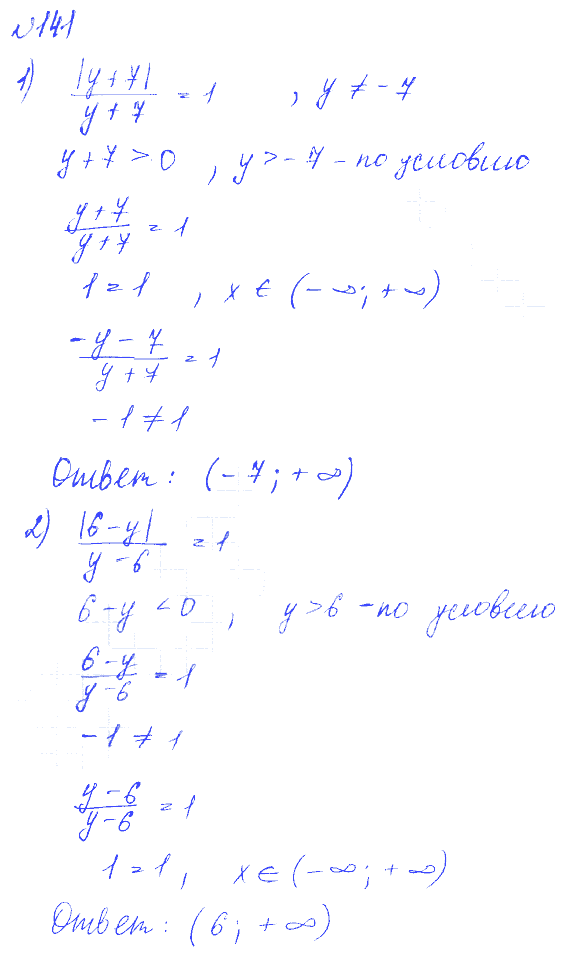 №141
1) |y+7| / y+7 = 1 , y ≠ -7
y+7 > 0 , y > -7 - по условию
y+7 / y+7 = 1
1 = 1 , x ∈ (-∞; +∞)
-y-7 / y+7 = 1
-1 ≠ 1
Ответ: (-7; +∞)
2) |6-y| / y-6 = 1
6-y < 0 , y > 6 - по условию
6-y / y-6 = 1
-1 ≠ 1
y-6 / y-6 = 1
1 = 1, x ∈ (-∞; +∞)
Ответ: (6; +∞)